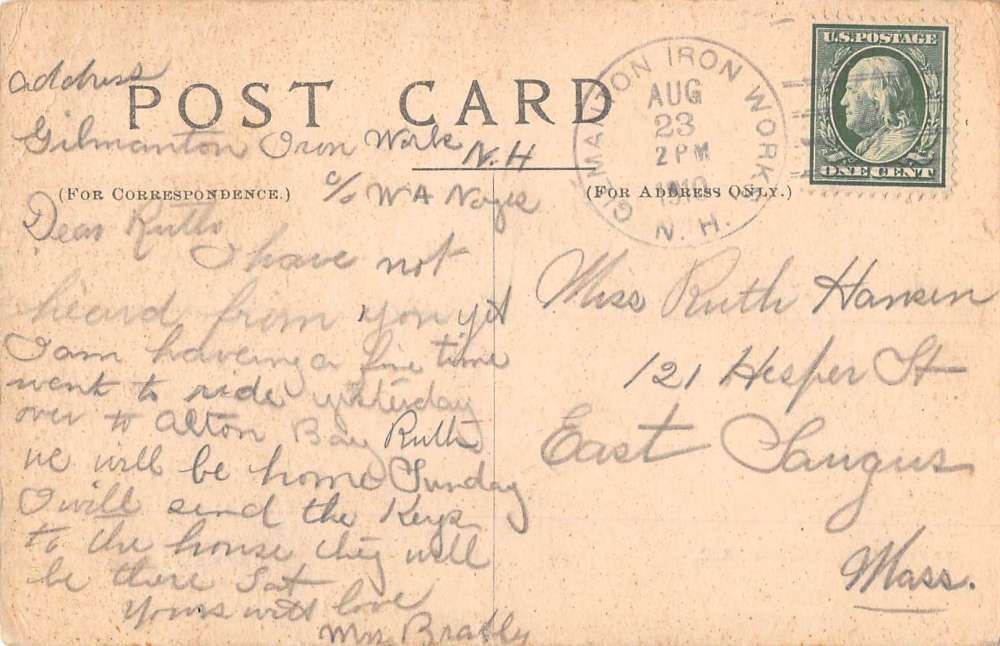 address
POST CARD
Gilmanton Iron Work
N.H
c/o W A Noyes
(FOR CORRESPONDENCE.)
Dear Ruth
I have not
heard from you yet
I am haveing a fine time
went to ride yesterday
over to Alton Bay Ruth
we will be home Sunday
I will send the Keys
to the house they will
be there Sat
yours with love
Mrs.
GILMANTON IRON WORKS
AUG
23
2 PM
1910
N. H.
U.S. POSTAGE
ONE CENT
(FOR ADDRESS ONLY.)
Miss Ruth Hansen
121 Hesper St
East Saugus
Mass.